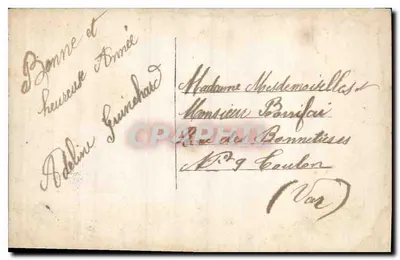 Bonne et
heureuse Année
Adeline Guinchard
Madame Mesdemoiselles et
Monsieur Bonifai
Rue des Bonnetières
N° 9 Toulon
(Var)